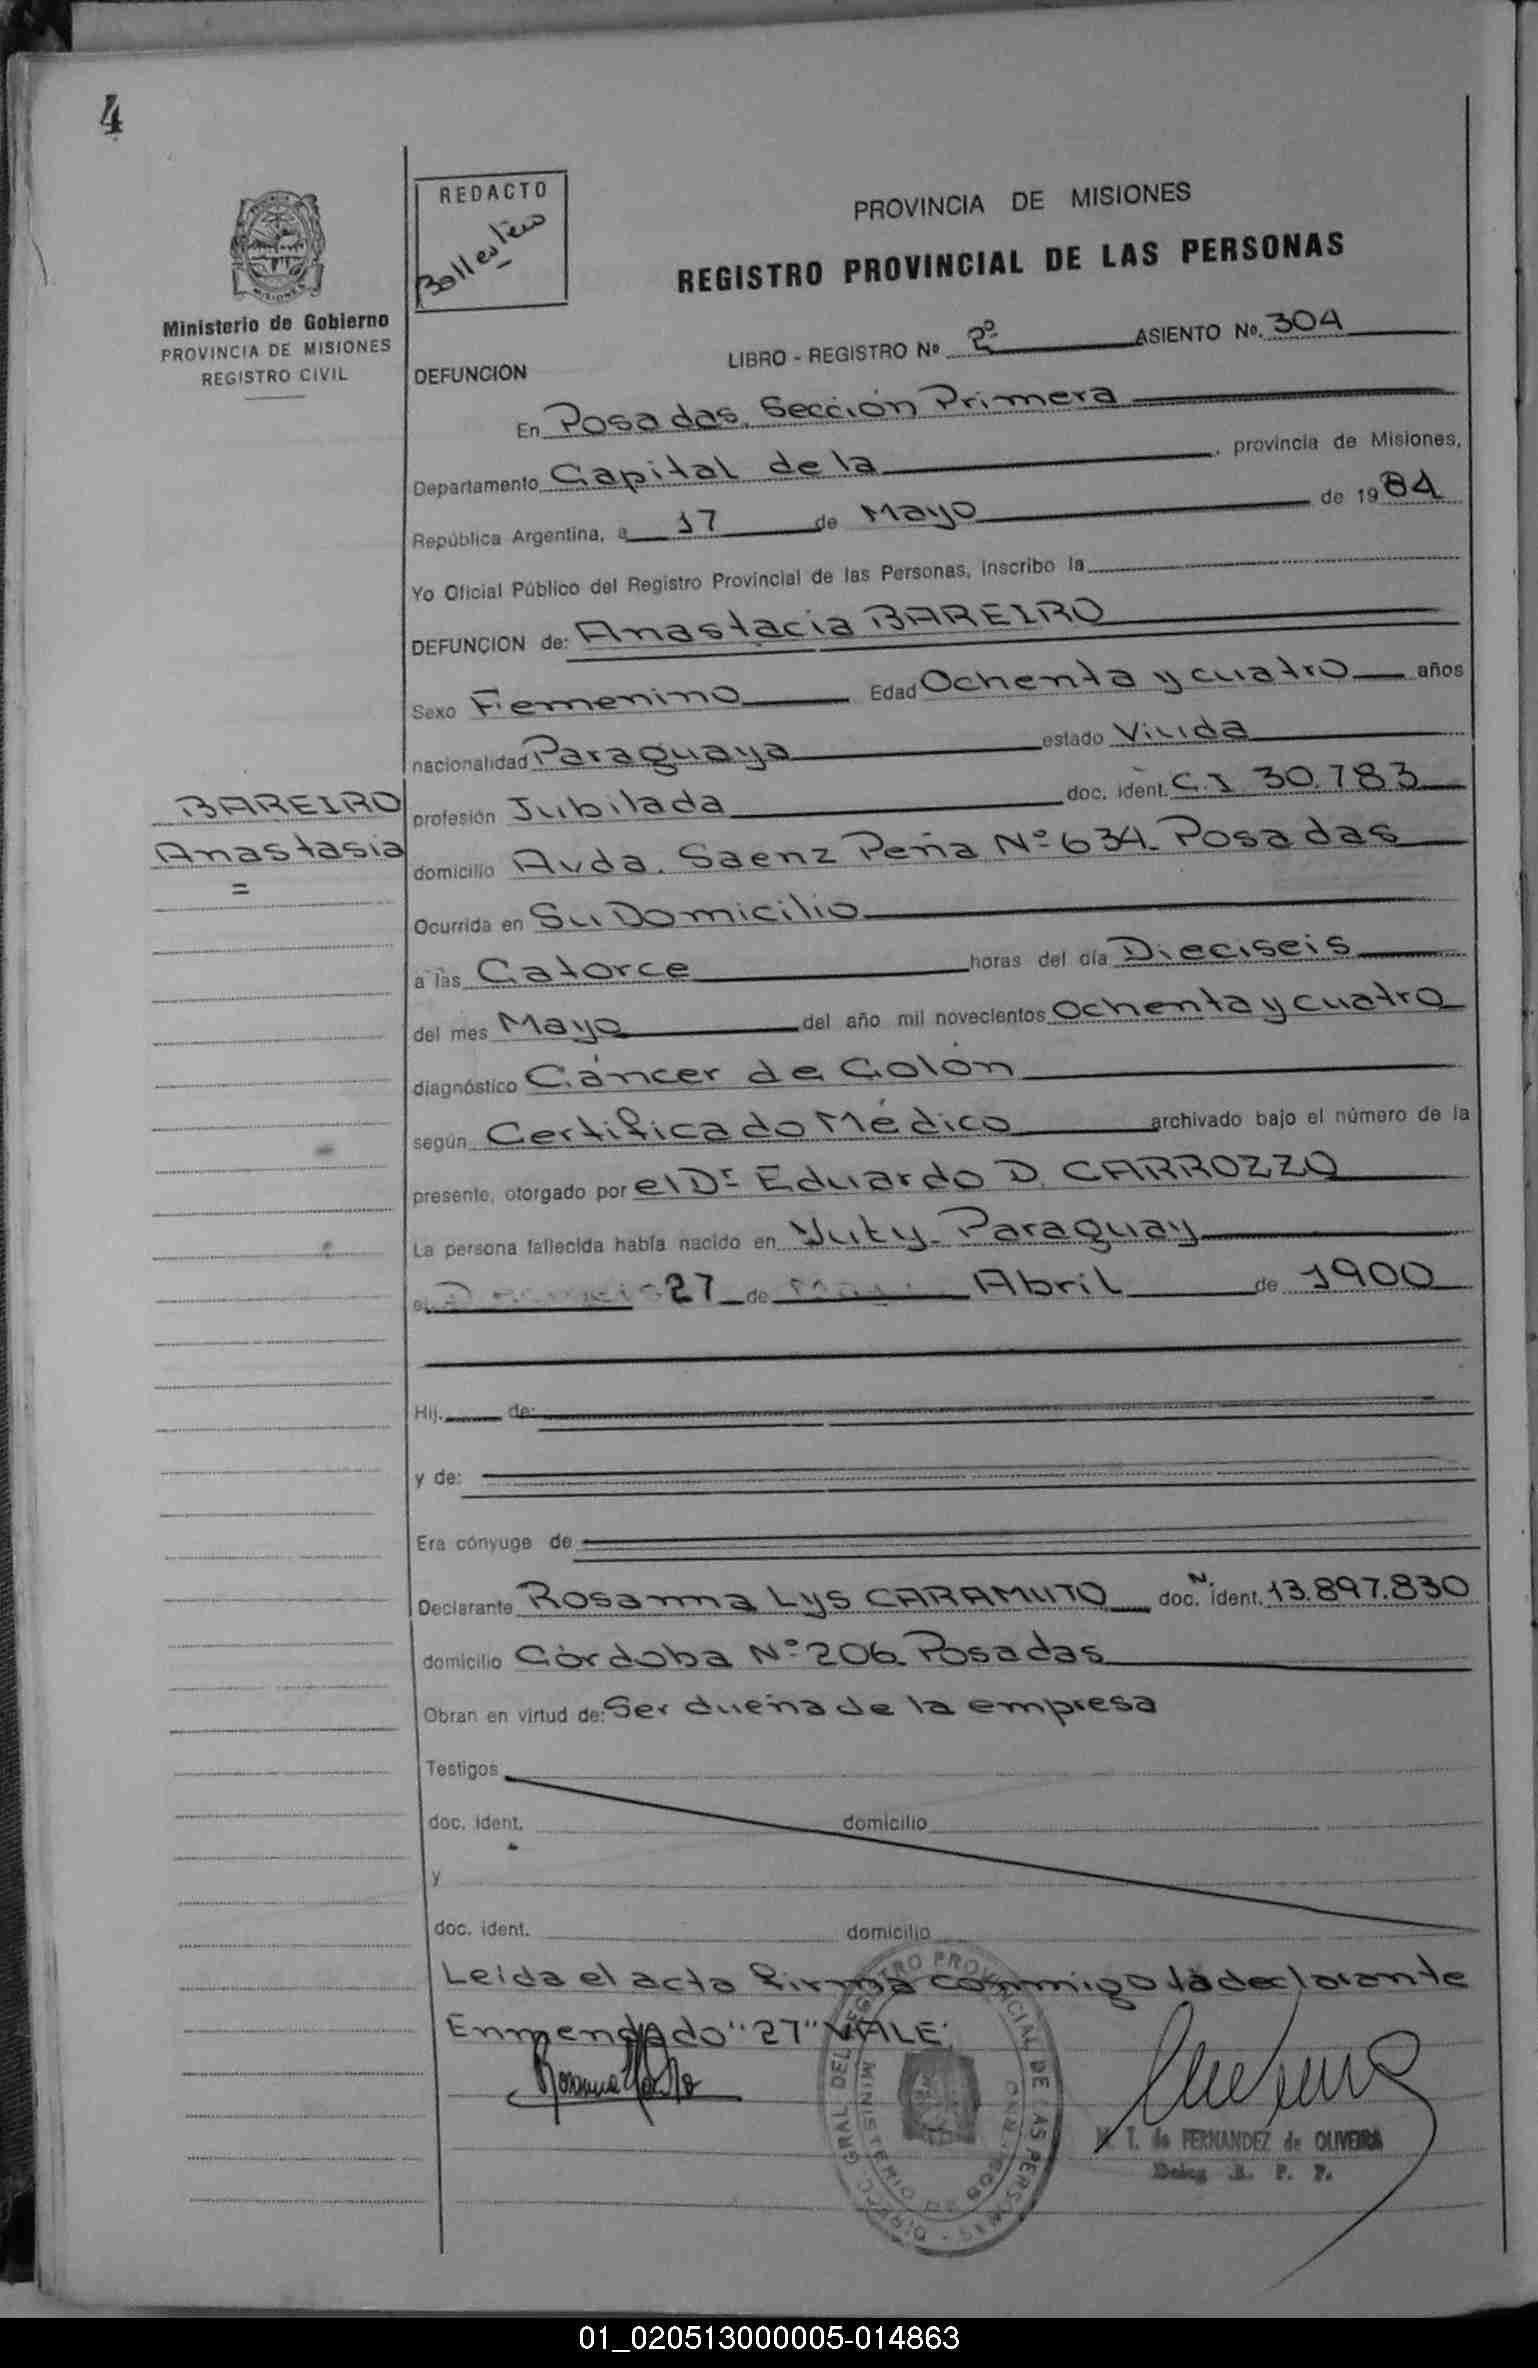 4
REDACTO
Ballesteiro
PROVINCIA DE MISIONES
REGISTRO PROVINCIAL DE LAS PERSONAS
Ministerio de Gobierno
PROVINCIA DE MISIONES
REGISTRO CIVIL
LIBRO - REGISTRO Nº 2º ASIENTO Nº. 304
DEFUNCION
En Posadas, Sección Primera
Departamento Capital de la , provincia de Misiones,
República Argentina, a 17 de Mayo de 1984
Yo Oficial Público del Registro Provincial de las Personas, inscribo la
DEFUNCION de: Anastacia BAREIRO
Sexo Femenino Edad Ochenta y cuatro años
nacionalidad Paraguaya estado Viuda
BAREIRO
Anastasia
=
profesión Jubilada doc. ident. C.I 30.783
domicilio Avda. Saenz Peña Nº 634. Posadas
Ocurrida en Su Domicilio
a las Catorce horas del día Dieciseis
del mes Mayo del año mil novecientos Ochenta y cuatro
diagnóstico Cáncer de Colón
según Certificado Médico archivado bajo el número de la
presente, otorgado por el Dr Eduardo D. CARROZZO
La persona fallecida había nacido en Yuty - Paraguay
el 27 de Abril de 1900
Hij. de:
y de:
Era cónyuge de
Declarante Rosanna Lys CARAMUTO doc. N. ident. 13.897.830
domicilio Córdoba Nº 206 Posadas
Obran en virtud de: Ser dueña de la empresa
Testigos
doc. ident. domicilio
y
doc. ident. domicilio
Leida el acta firma conmigo la declarante
Enmendado "27" VALE.
DIREC. GRAL. DEL REGISTRO PROVINCIAL DE LAS PERSONAS
MINISTERIO DE GOBIERNO
T. de FERNANDEZ de OLIVEIRA
Deleg. R. P. P.
01_020513000005-014863